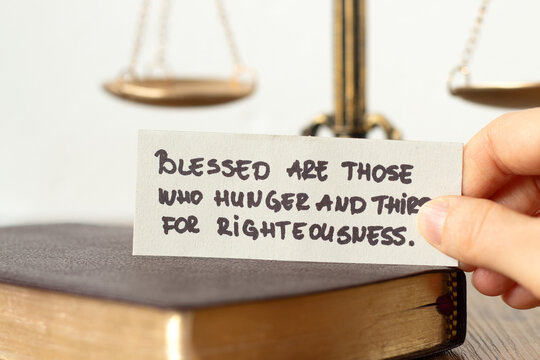 BLESSED ARE THOSE
WHO HUNGER AND
FOR RIGHTEOUSNESS.